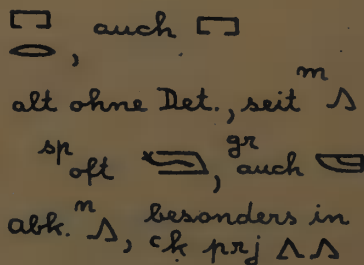 𓉐𓂋, auch 𓉐
alt ohne Det., seit m 𓂻
sp oft, gr auch
abk. n 𓂻, besonders in
ck prj 𓂻𓂻